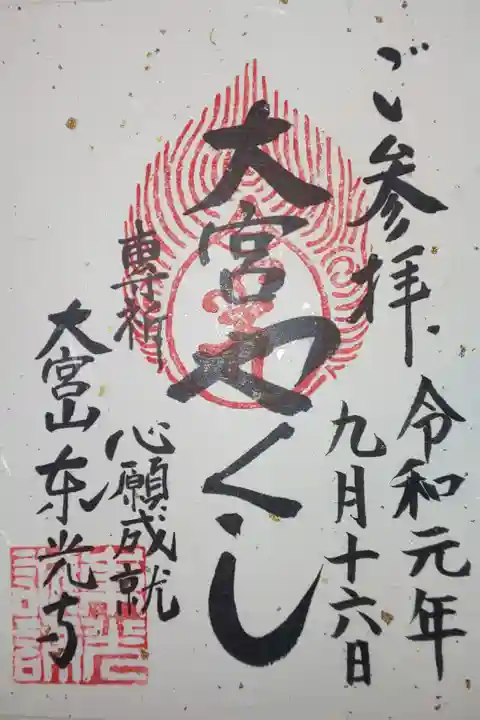 ご参拝
令和元年
九月十六日
大宮やくし
専祈
心願成就
大宮山东光寺